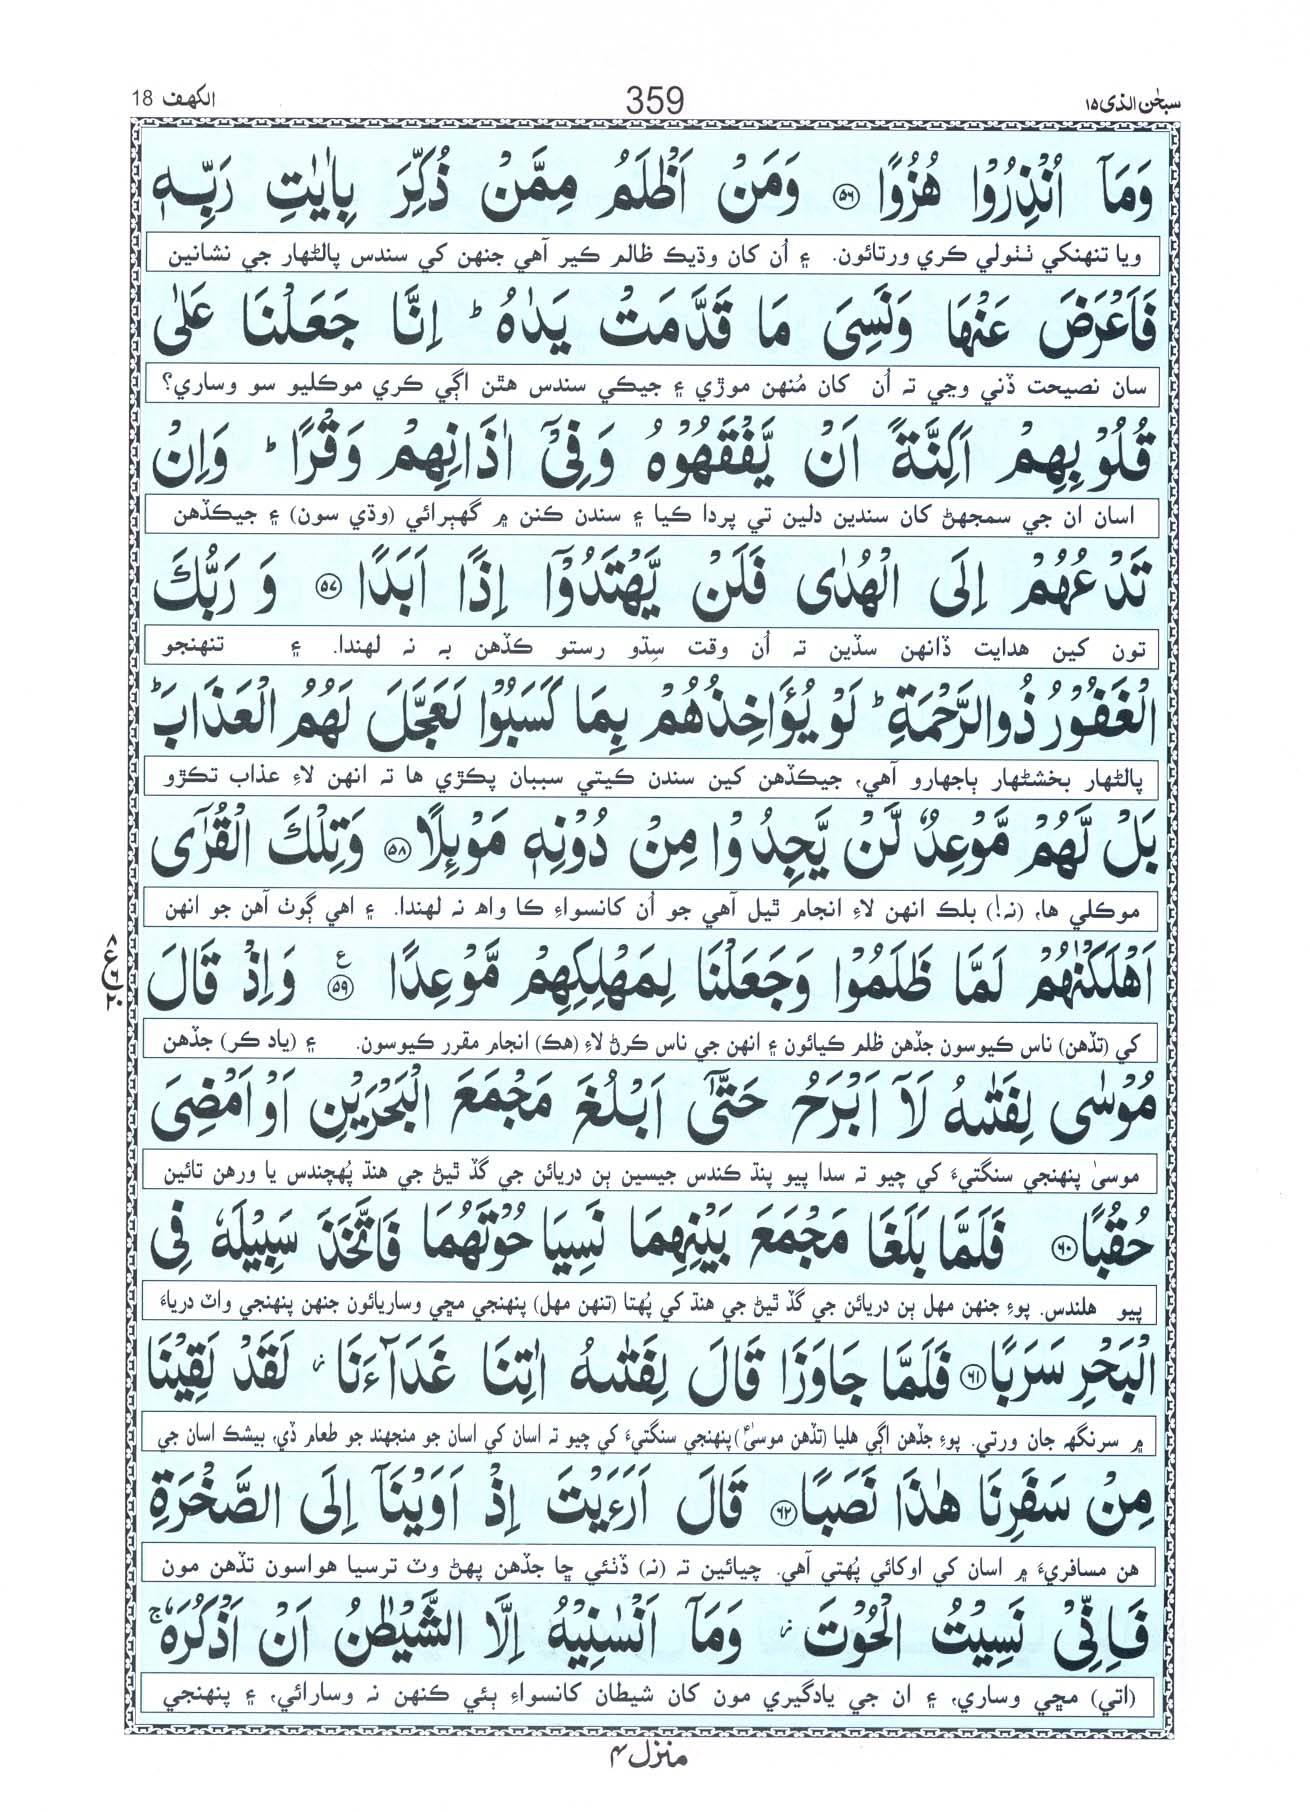 سبحٰن الذی ۱۵
359
الکهف 18
وَمَآ اُنْذِرُوْا هُزُوًا ﴿۵۶﴾ وَمَنْ اَظْلَمُ مِمَّنْ ذُكِّرَ بِاٰيٰتِ رَبِّهٖ
ويا تنهنکي ٺٺولي ڪري ورتائون. ۽ اُن کان وڌيڪ ظالم ڪير آهي جنهن کي سندس پالڻهار جي نشانين
فَاَعْرَضَ عَنْهَا وَنَسِيَ مَا قَدَّمَتْ يَدٰهُ ؕ اِنَّا جَعَلْنَا عَلٰي
سان نصيحت ڏني وڃي ته اُن کان مُنهن موڙي ۽ جيڪي سندس هٿن اڳي ڪري موڪليو سو وساري؟
قُلُوْبِهِمْ اَكِنَّةً اَنْ يَّفْقَهُوْهُ وَفِيْٓ اٰذَانِهِمْ وَقْرًا ؕ وَاِنْ
اسان ان جي سمجهڻ کان سندين دلين تي پردا ڪيا ۽ سندن ڪنن ۾ گهٻرائي (وڌي سون) ۽ جيڪڏهن
تَدْعُهُمْ اِلَي الْهُدٰى فَلَنْ يَّهْتَدُوْٓا اِذًا اَبَدًا ﴿۵۷﴾ وَ رَبُّكَ
تون کين هدايت ڏانهن سڏين ته اُن وقت سِڌو رستو ڪڏهن به نه لهندا. ۽ تنهنجو
الْغَفُوْرُ ذُوالرَّحْمَةِ ؕ لَوْ يُؤَاخِذُهُمْ بِمَا كَسَبُوْا لَعَجَّلَ لَهُمُ الْعَذَابَ ؕ
پالڻهار بخشڻهار ٻاجهارو آهي، جيڪڏهن کين سندن ڪيتي سببان پڪڙي ها ته انهن لاءِ عذاب تڪڙو
بَلْ لَّهُمْ مَّوْعِدٌ لَّنْ يَّجِدُوْا مِنْ دُوْنِهٖ مَوْىِٕلًا ﴿۵۸﴾ وَتِلْكَ الْقُرٰٓى
موڪلي ها، (نه!) بلڪ انهن لاءِ انجام ٿيل آهي جو اُن کانسواءِ ڪا واھ نه لهندا. ۽ اهي ڳوٺ آهن جو انهن
اَهْلَكْنٰهُمْ لَمَّا ظَلَمُوْا وَجَعَلْنَا لِمَهْلِكِهِمْ مَّوْعِدًا ﴿۵۹﴾ ع وَاِذْ قَالَ
کي (تڏهن) ناس ڪيوسون جڏهن ظلم ڪيائون ۽ انهن جي ناس ڪرڻ لاءِ (هڪ) انجام مقرر ڪيوسون. ۽ (ياد ڪر) جڏهن
مُوْسٰى لِفَتٰىهُ لَآ اَبْرَحُ حَتّٰٓى اَبْلُغَ مَجْمَعَ الْبَحْرَيْنِ اَوْ اَمْضِيَ
موسىٰ پنهنجي سنگتيءَ کي چيو ته سدا پيو پنڌ ڪندس جيسين ٻن دريائن جي گڏ ٿيڻ جي هنڌ پُهچندس يا ورهن تائين
حُقُبًا ﴿۶۰﴾ فَلَمَّا بَلَغَا مَجْمَعَ بَيْنِهِمَا نَسِيَا حُوْتَهُمَا فَاتَّخَذَ سَبِيْلَهٗ فِي
پيو هلندس. پوءِ جنهن مهل ٻن دريائن جي گڏ ٿيڻ جي هنڌ کي پُهتا (تنهن مهل) پنهنجي مڇي وساريائون جنهن پنهنجي واٽ درياءَ
الْبَحْرِ سَرَبًا ﴿۶۱﴾ فَلَمَّا جَاوَزَا قَالَ لِفَتٰىهُ اٰتِنَا غَدَآءَنَا ؗ لَقَدْ لَقِيْنَا
۾ سرنگهہ جان ورتي. پوءِ جڏهن اڳي هليا (تڏهن موسىٰؑ) پنهنجي سنگتيءَ کي چيو ته اسان کي اسان جو منجهند جو طعام ڏي، بيشڪ اسان جي
مِنْ سَفَرِنَا هٰذَا نَصَبًا ﴿۶۲﴾ قَالَ اَرَءَيْتَ اِذْ اَوَيْنَآ اِلَي الصَّخْرَةِ
هن مسافريءَ ۾ اسان کي اوکائي پُهتي آهي. چيائين ته (نه) ڏٺئي ڇا جڏهن پهڻ وٽ ترسيا هواسون تڏهن مون
فَاِنِّيْ نَسِيْتُ الْحُوْتَ ؗ وَمَآ اَنْسٰنِيْهُ اِلَّا الشَّيْطٰنُ اَنْ اَذْكُرَهٗ ۚ
(اتي) مڇي وساري، ۽ ان جي يادگيري مون کان شيطان کانسواءِ ٻئي ڪنهن نه وسارائي، ۽ پنهنجي
منزل ۴